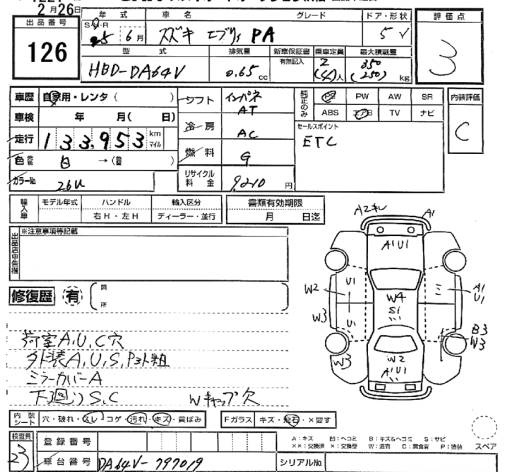 2月26日
出品番号
126
年式 車名 グレード ドア・形状
6月 スズキ エブリィ PA 5
評価点
3
型式 排気量 新車保証書 乗車定員 最大積載量
有 記入無
HBD-DA64V 0.65cc 2(4)人 350(250)kg
車歴 自家用・レンタ( )
車検 年 月( 日)
走行 133,953 km マイル
色 白 →( )
カラーNo 26U
シフト インパネAT
冷房 AC
燃料 G
リサイクル料金 9210円
純正のみ
PS PW AW SR
ABS エアB TV ナビ
セールスポイント
ETC
内装評価
C
輸入車
モデル年式 ハンドル 輸入区分
右H・左H ディーラー・並行
書類有効期限
月 日迄
出品店申告欄
※注意事項等記載
修復歴 有
箇所
荷室A,U,C穴
外装A,U,S,
ミラーカバーA
下廻りS,C Wキャップ欠
A2 A1
A1U1
U1 U1
W2
W3
W4
S1
A1
U1
B3
W3
W3
W2
A1U1
内装シート 穴・破れ・スレ・コゲ・汚れ・キズ・黄ばみ
Fガラス キズ・飛石・×要す
検査員
23
登録番号
車台番号 DA64V-797019
シリアルNo
A:キズ U:ヘコミ B:キズ&ヘコミ S:サビ
スペア